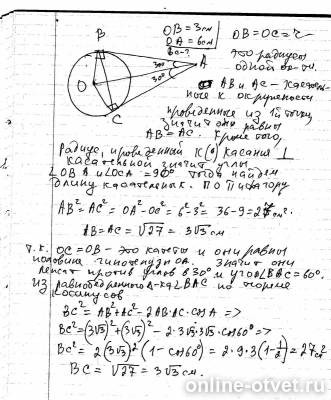 B
OB = 3см
OA = 6см
BC-?
OB = OC = r
это радиусы
одной окр-ти.
A
30°
30°
O
C
AB и AC - касатель-
ные к окружности
проведенные из 1й точки
значит они равны
AB = AC. Кроме того,
Радиус, проведенный к (·) касания ⊥
касательной значит углы
∠OBA и ∠OCA = 90° тогда найдем
длину касательных. По Пифагору
AB² = AC² = OA² - OC² = 6² - 3² = 36 - 9 = 27см².
AB = AC = √27 = 3√3 см
т.к. OC = OB - это катеты и они равны
половина гипотенузы OA. Значит они
лежат против углов в 30° и угол ∠BAC = 60°.
Из равнобедренного Δ-ка ∠BAC по теореме
косинусов
BC² = AB² + AC² - 2AB·AC·cos A =>
BC² = (3√3)² + (3√3)² - 2·3√3·3√3·cos60° =>
BC² = 2(3√3)²(1 - cos60°) = 2·9·3(1 - 1/2) = 27см²
BC = √27 = 3√3 см.
online-otvet.ru